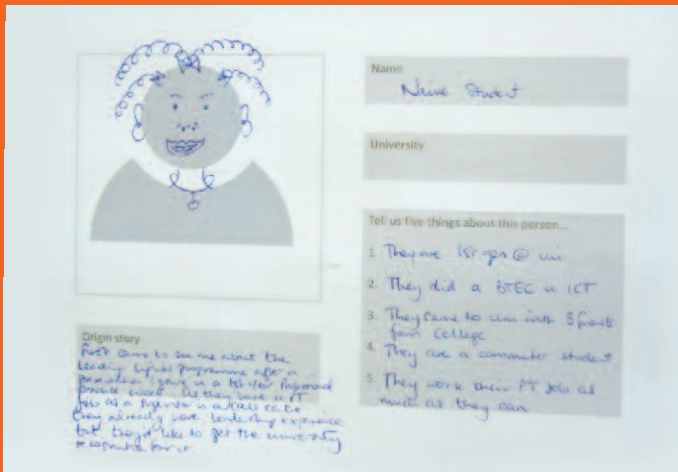 Name
Naive Student
University
Tell us five things about this person...
1. They are 1st gen @ uni
2. They did a BTEC in ICT
3. They came to uni with 3 friends
from College
4. They are a commuter student
5. They work their PT job as
much as they can
Origin story
First came to see me about the
Leading Lights programme after a
I gave in a 1st year
practice. As they have a PT
job as a in a call centre
they already have leadership experience
but they'd like to get the university
recognition for it.